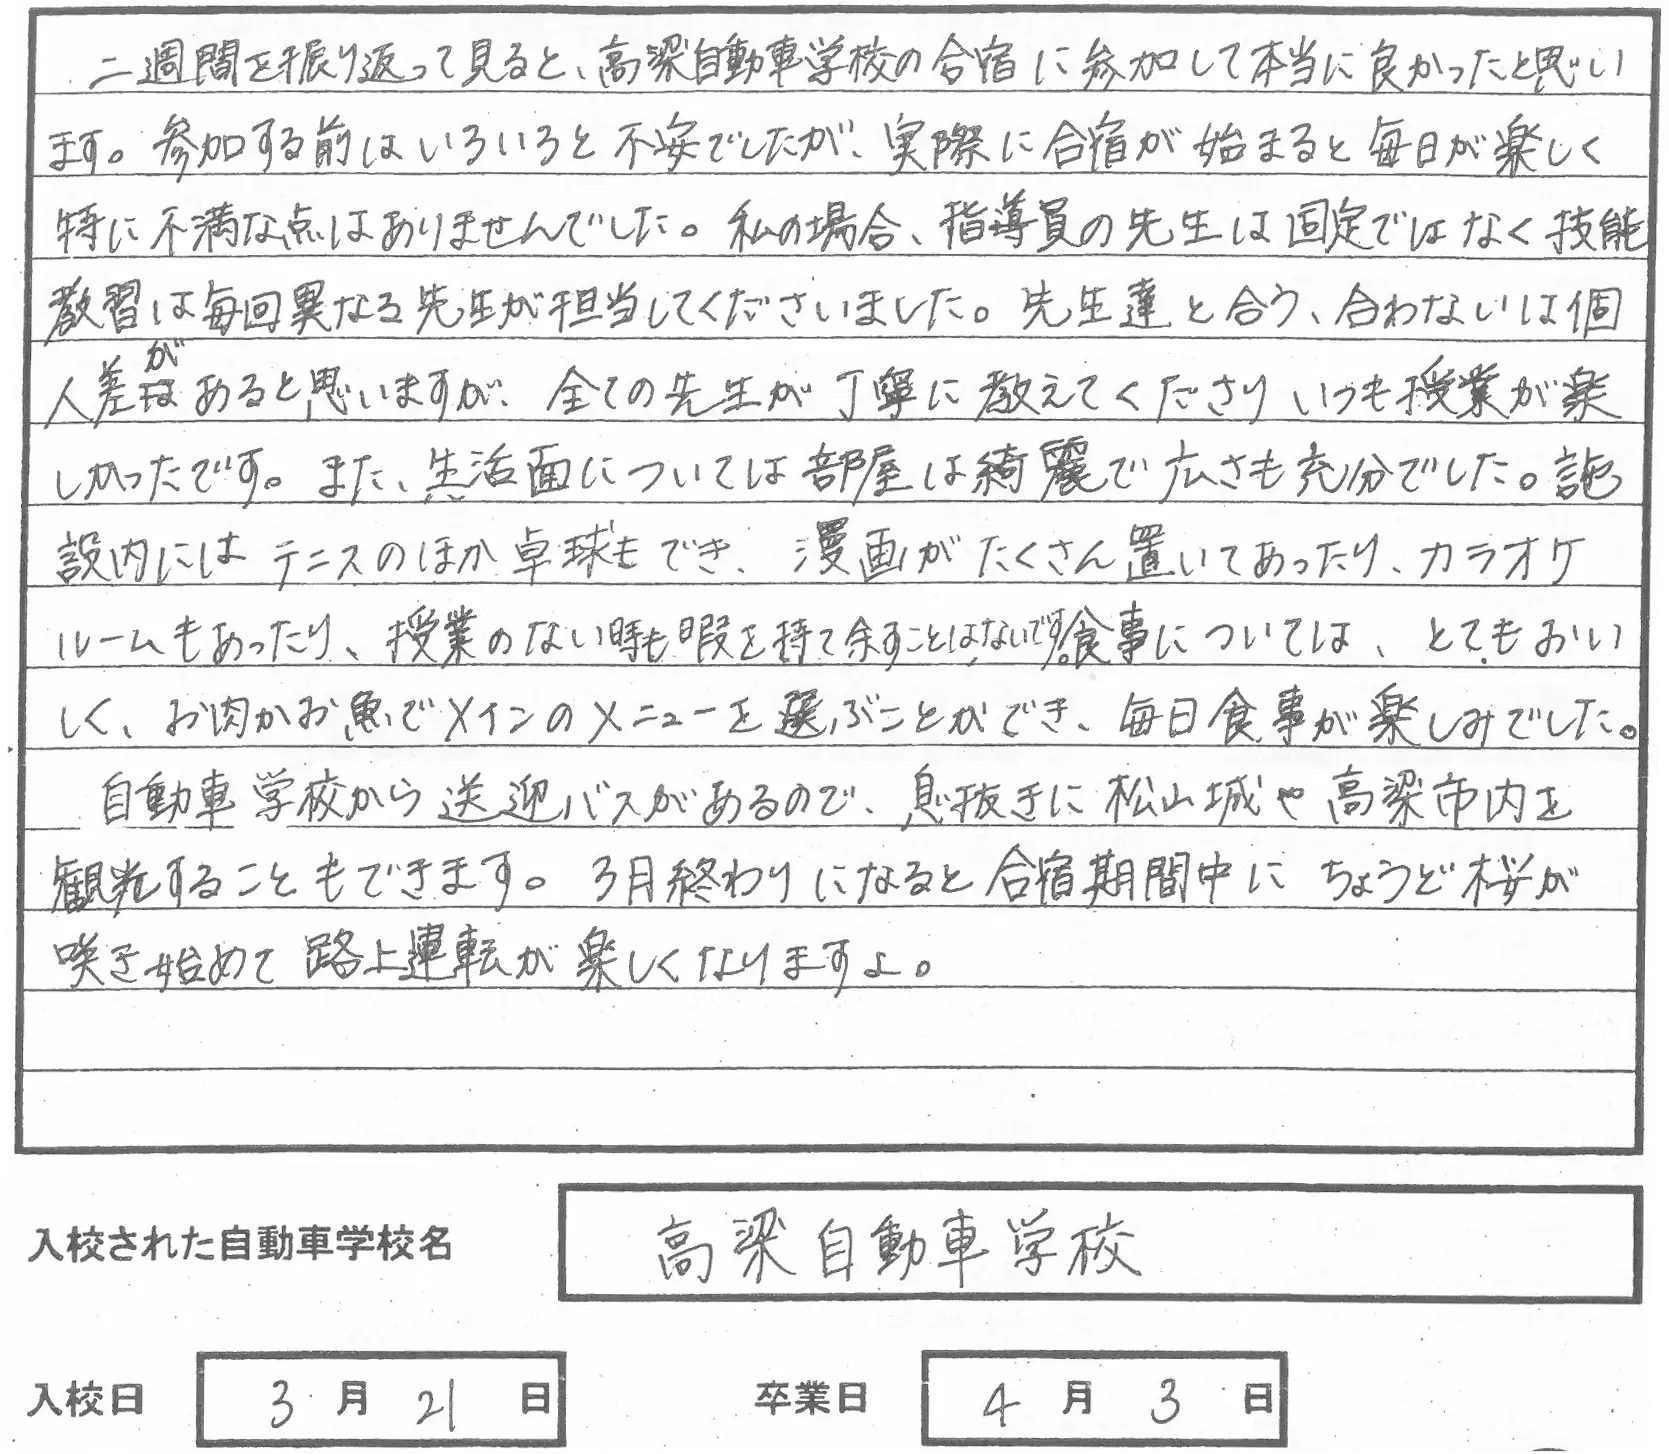 二週間を振り返って見ると、高梁自動車学校の合宿に参加して本当に良かったと思い
ます。参加する前はいろいろと不安でしたが、実際に合宿が始まると毎日が楽しく
特に不満な点はありませんでした。私の場合、指導員の先生は固定ではなく技能
教習は毎回異なる先生が担当してくださいました。先生達と合う、合わないは個
人差があると思いますが、全ての先生が丁寧に教えてくださりいつも授業が楽
しかったです。また、生活面については部屋は綺麗で広さも充分でした。施
設内にはテニスのほか卓球もでき、漫画がたくさん置いてあったり、カラオケ
ルームもあったり、授業のない時も暇を持て余すことはないです。食事については、とてもおい
しく、お肉かお魚でメインのメニューを選ぶことができ、毎日食事が楽しみでした。
自動車学校から送迎バスがあるので、息抜きに松山城や高梁市内を
観光することもできます。3月終わりになると合宿期間中にちょうど桜が
咲き始めて路上運転が楽しくなりますよ。
入校された自動車学校名 高梁自動車学校
入校日 3月21日 卒業日 4月3日